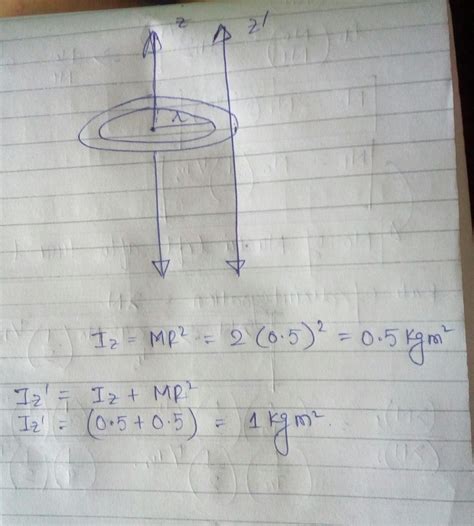 z z'
r
Iz = MR² = 2 (0.5)² = 0.5 kgm²
Iz' = Iz + MR²
Iz' = (0.5 + 0.5) = 1 kgm².